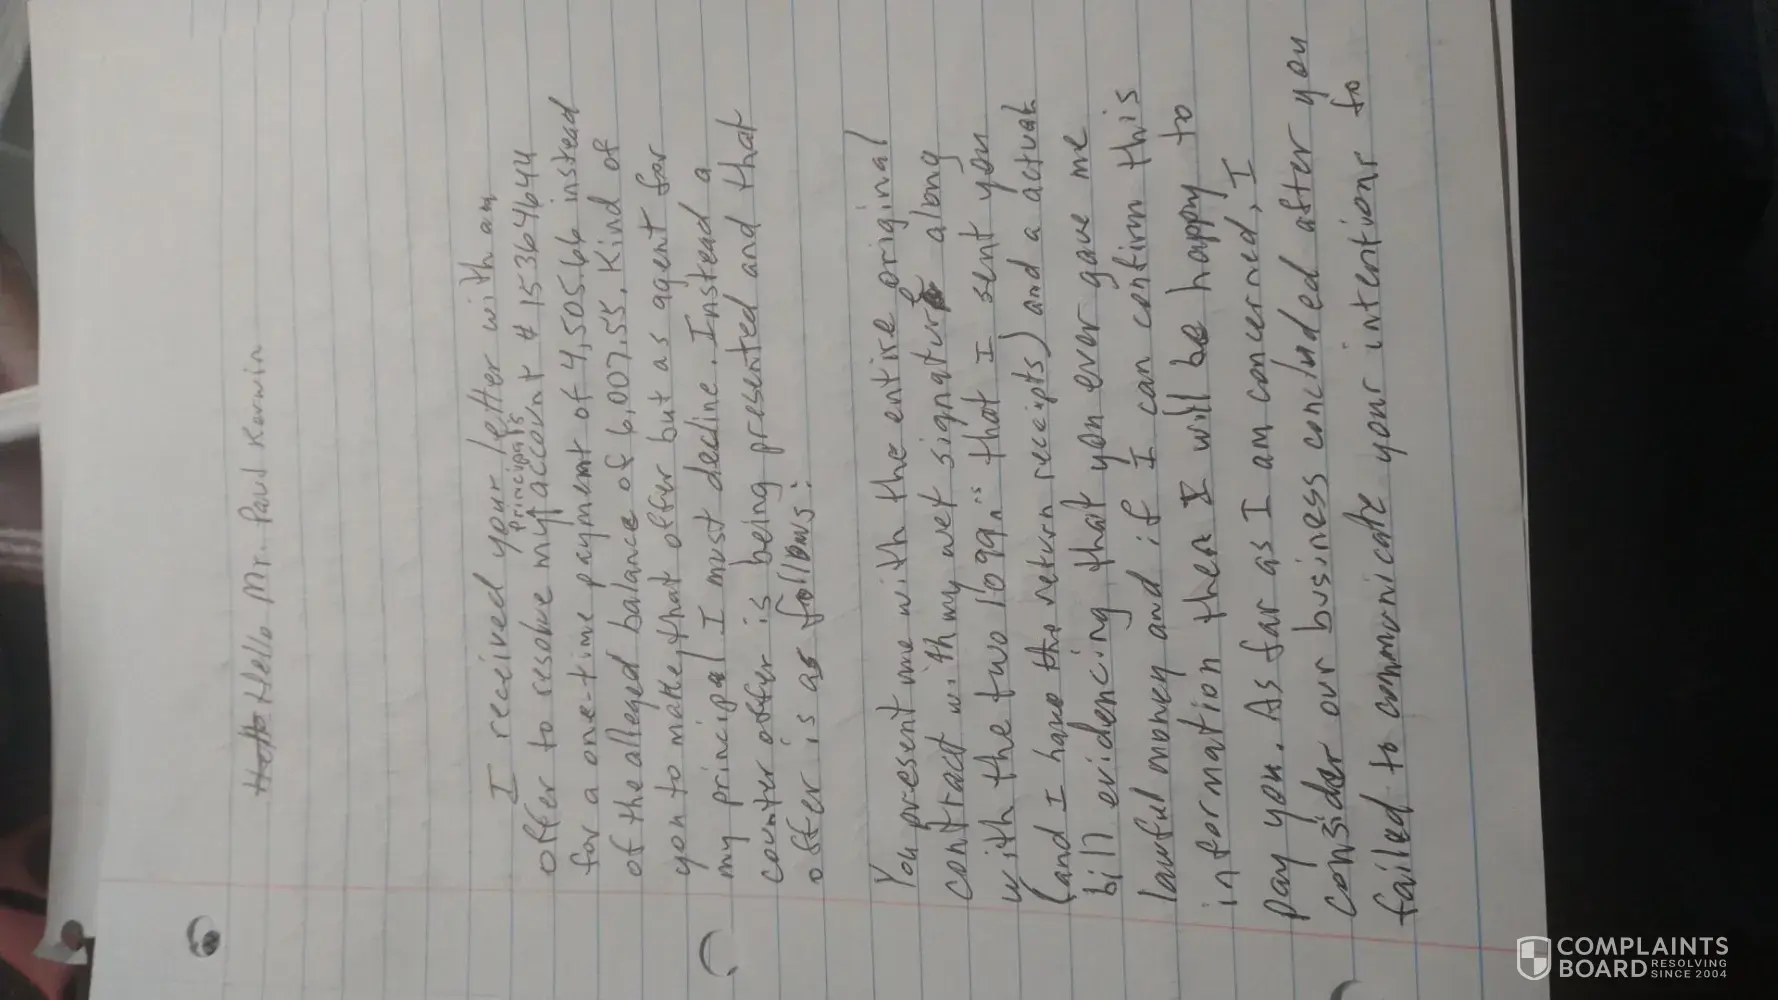 Hello Mr. Paul Kerwin
I received your letter with an
offer to resolve my principals account # 153646644
for a one-time payment of 4,505.66 instead
of the alleged balance of 6,007.55. Kind of
you to make that offer but as agent for
my principal I must decline. Instead a
counter offer is being presented and that
offer is as follows:
You present me with the entire original
contract with my wet signature along
with the two 1099 that I sent you
(and I have the return receipts) and a actual
bill evidencing that you ever gave me
lawful money and if I can confirm this
information then I will be happy to
pay you. As far as I am concerned, I
consider our business concluded after you
failed to communicate your intentions to
COMPLAINTS
BOARD RESOLVING
SINCE 2004